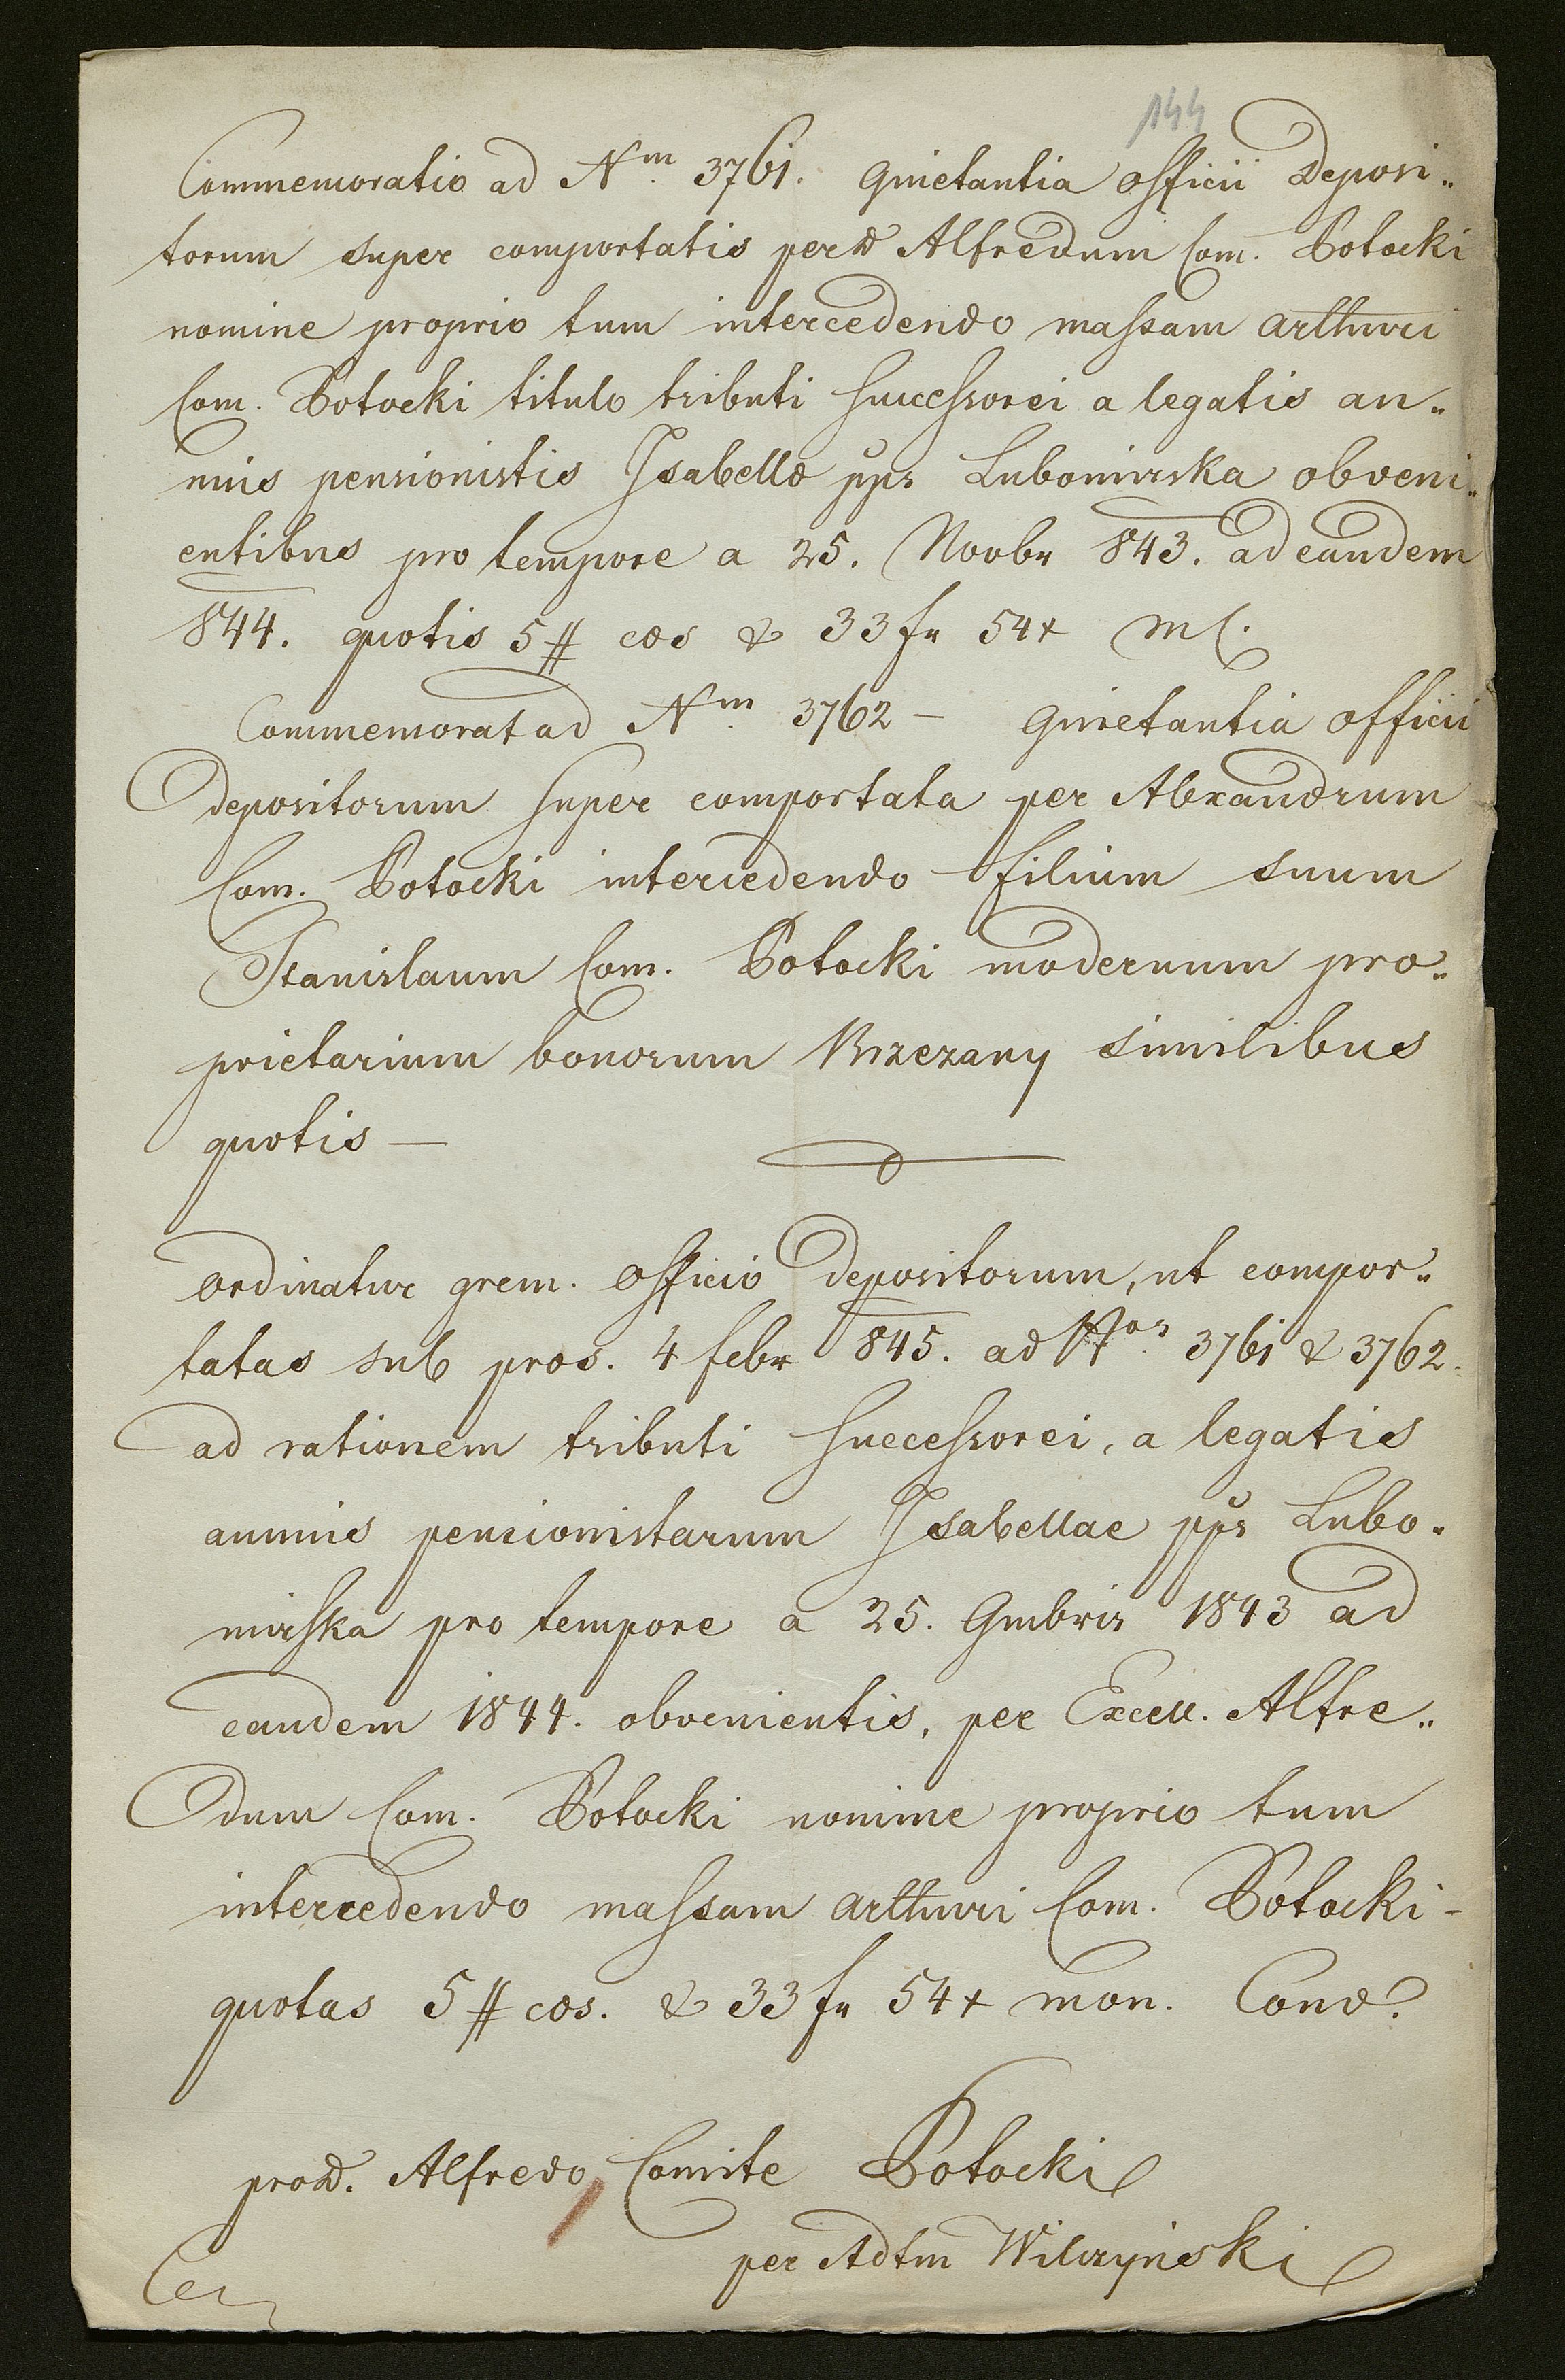 144
Commemoratio ad Nm 3761. Quietantia officii Deposi„
torum super comportatis per Alfredum Com. Potocki
nomine proprio tum intercedendo massam Arthuri
Com. Potocki titulo tributi successorei a legatis an„
nuis pensionistis Isabellæ pps Lubomirska obveni„
entibus pro tempore a 25. Novbr 843. ad eandem
844. quotis 5 # cæs & 33 fr 54 x MC.
Commemorat ad Nm 3762 — Quietantia officii
depositorum super comportata per Alexandrum
Com. Potocki intercedendo filium suum
Stanislaum Com. Potocki modernum pro„
prietarium bonorum Brzezany similibus
quotis —
Ordinatur grem. Officio depositorum, ut compor„
tatas sub præs. 4 febr 845. ad Nos 3761 & 3762.
ad rationem tributi successorei, a legatis
annuis pensionistarum Isabellae pps Lubo„
mirska pro tempore a 25. 9mbris 1843 ad
eandem 1844. obvenientis, per Excell. Alfre„
dum Com. Potocki nomine proprio tum
intercedendo massam Arthuri Com. Potocki -
quotas 5 # cæs. & 33 fr 54 x mon. Conv.
pro Alfredo Comite Potocki
per Adtm Wilczyński